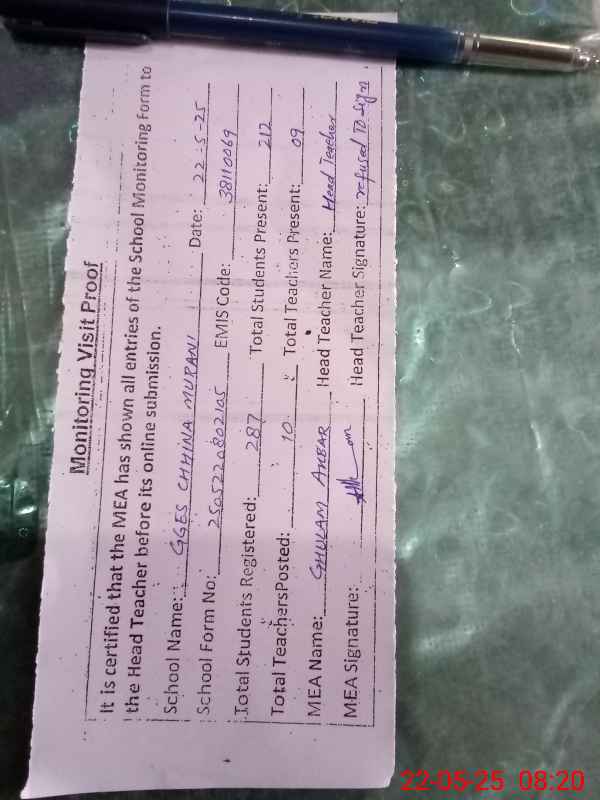 Monitoring Visit Proof
It is certified that the MEA has shown all entries of the School Monitoring Form to
the Head Teacher before its online submission.
School Name: GGES CHHINA MURANI Date: 22-5-25
School Form No: 2505220802105 EMIS Code: 38110069
Total Students Registered: 287 Total Students Present: 212
Total TeachersPosted: 10 Total Teachers Present: 09
MEA Name: GHULAM AKBAR Head Teacher Name: Head Teacher
MEA Signature: Head Teacher Signature: refused to sign
22-05-25 08:20